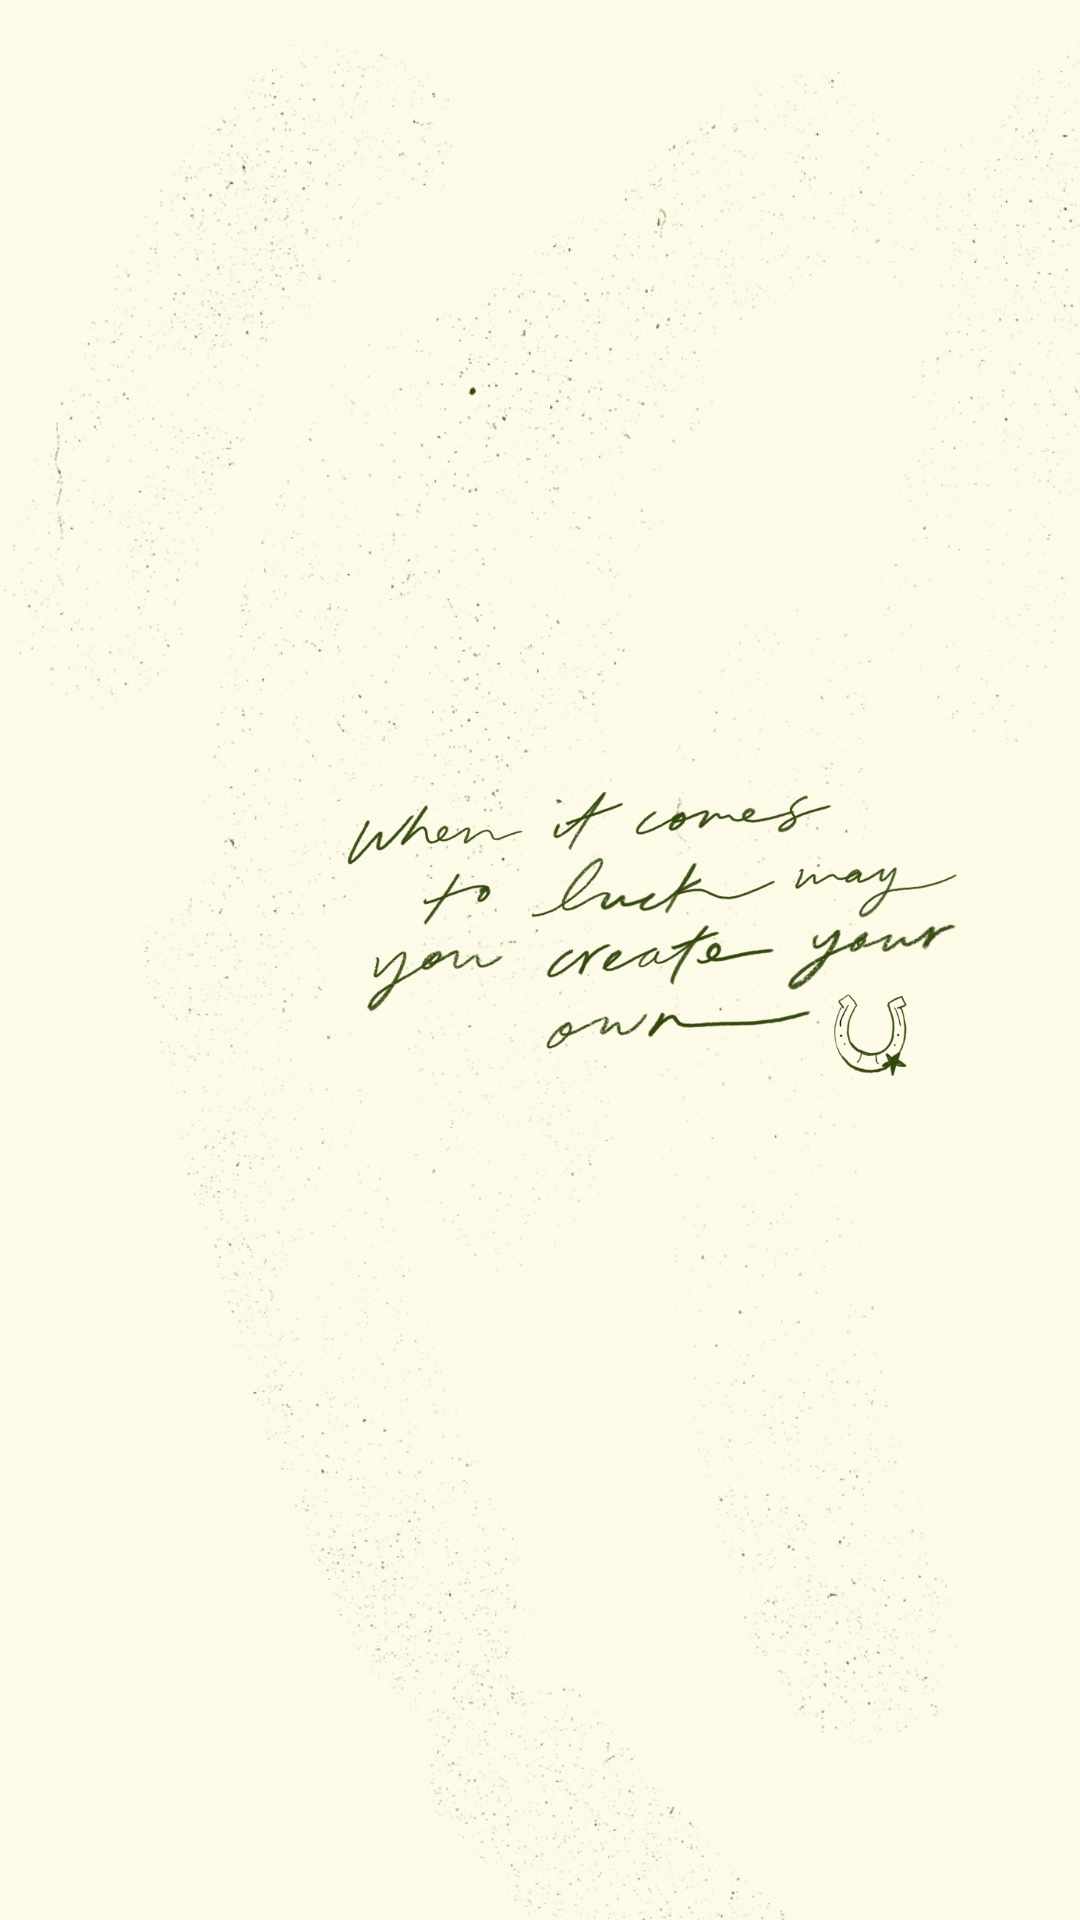 When it comes
to luck may
you create your
own